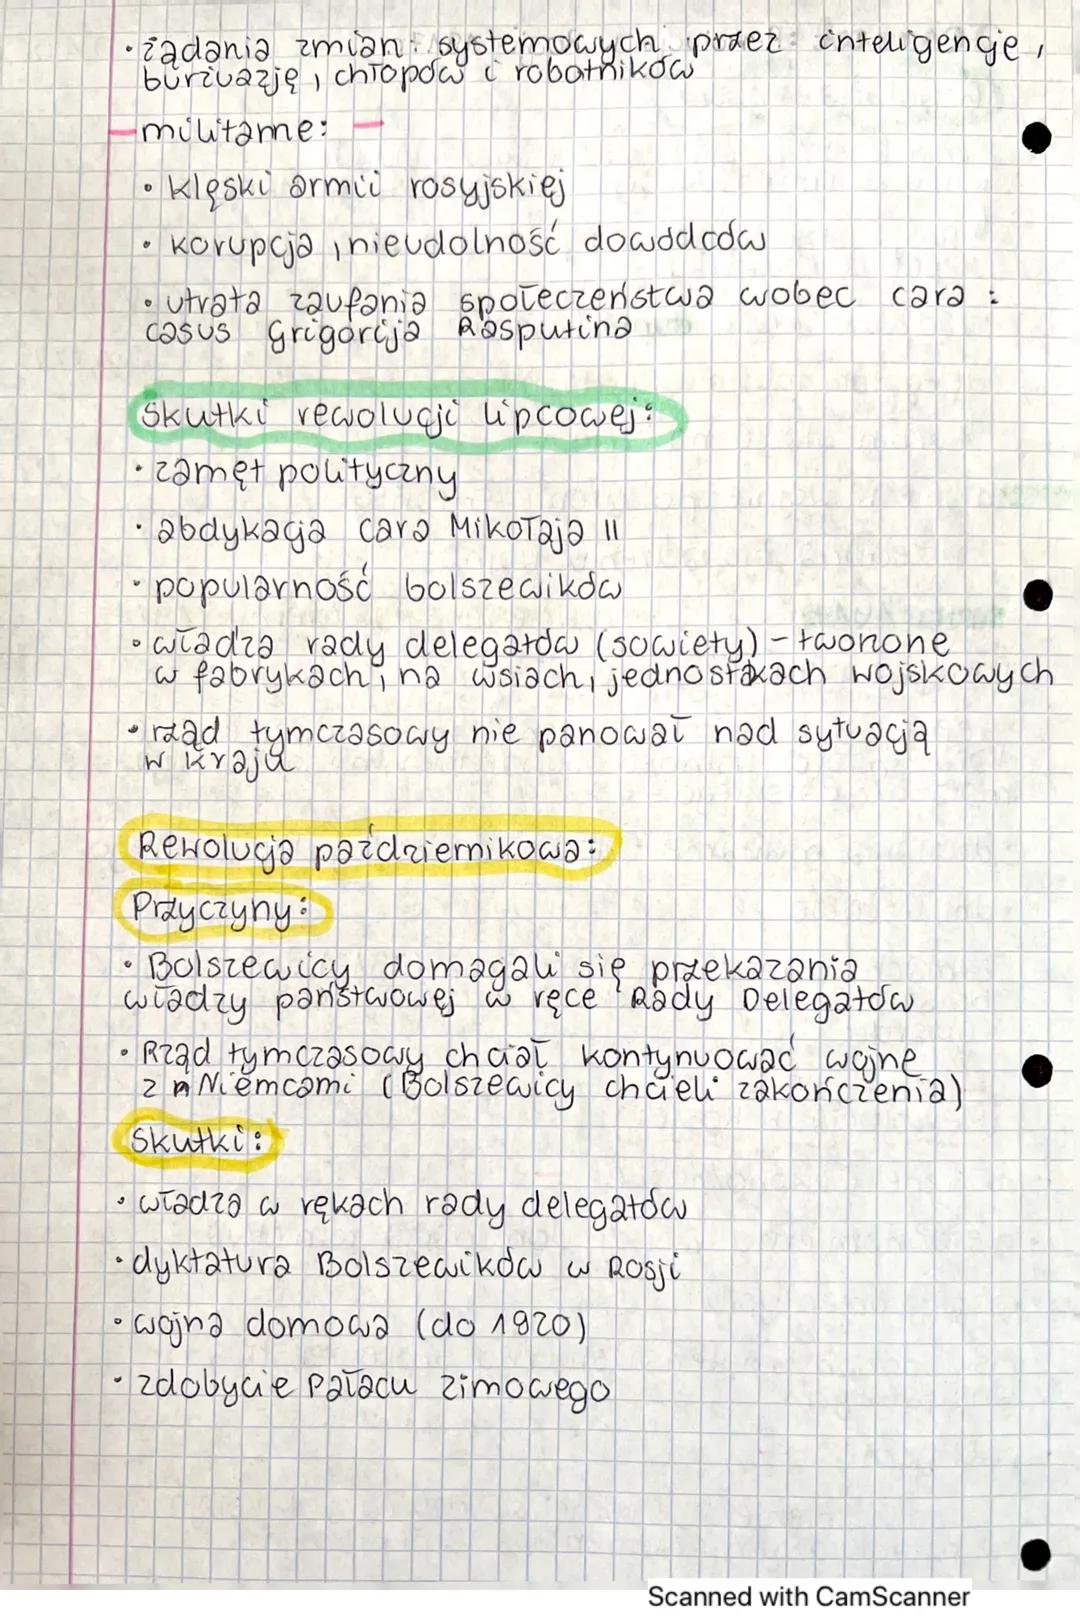 • żądania zmian systemowych przez inteligencje,
burżuazję, chłopów i robotników
- militarne: -
• klęski armii rosyjskiej
• korupcja, nieudolność dowódców
• utrata zaufania społeczeństwa wobec cara :
casus Grigorija Rasputina
Skutki rewolucji lipcowej:
• zamęt polityczny
• abdykacja cara Mikołaja II
• popularność bolszewików
• władza rady delegatów (sowiety) - tworzone
w fabrykach, na wsiach, jednostkach wojskowych
• rząd tymczasowy nie panował nad sytuacją
w kraju
Rewolucja październikowa:
Przyczyny:
• Bolszewicy domagali się przekazania
władzy państwowej w ręce Rady Delegatów
• Rząd tymczasowy chciał kontynuować wojnę
z Niemcami (Bolszewicy chcieli zakończenia)
Skutki:
• władza w rękach rady delegatów
• dyktatura Bolszewików w Rosji
• wojna domowa (do 1920)
• zdobycie Pałacu Zimowego
Scanned with CamScanner